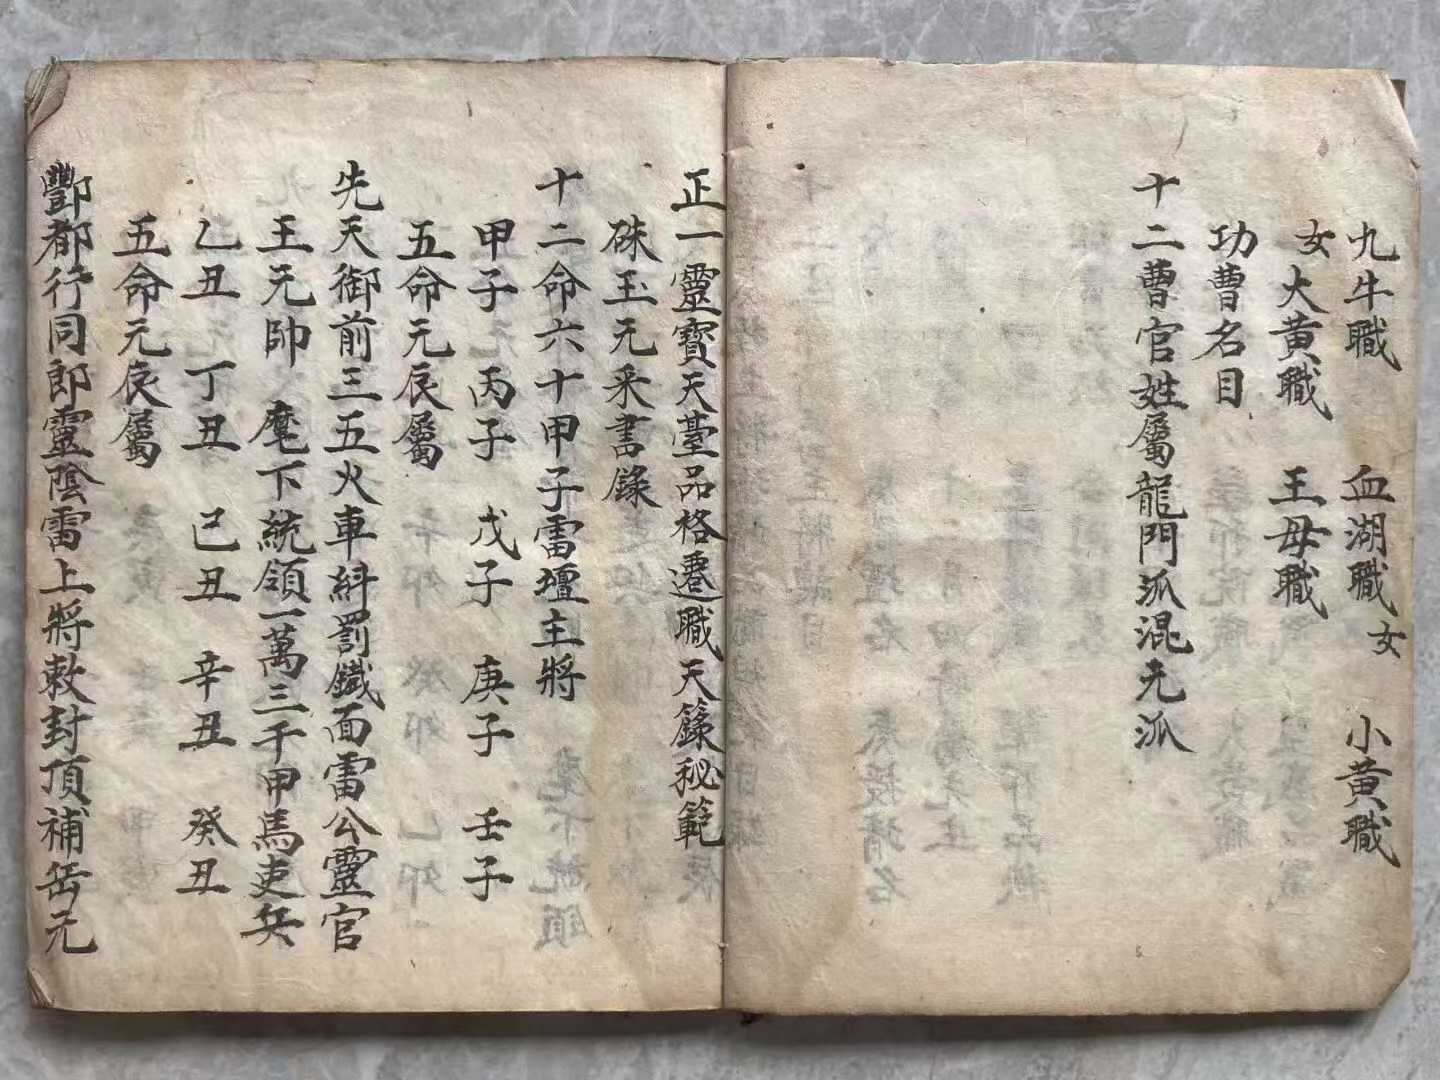 九牛職 血湖職 女 小黃職
女 大黃職 王母職
功曹名目
十二曹官姓屬龍門派混元派
正一靈寶天臺品格遷職天籙秘範
硃玉元采書錄
十二命六十甲子雷壇主將
甲子 丙子 戊子 庚子 壬子
五命元辰屬
先天御前三五火車糾罰鐵面雷公靈官
王元帥 麾下統領一萬三千甲馬吏兵
乙丑 丁丑 己丑 辛丑 癸丑
五命元辰屬
酆都行同郎靈陰雷上將敕封頂補岳元